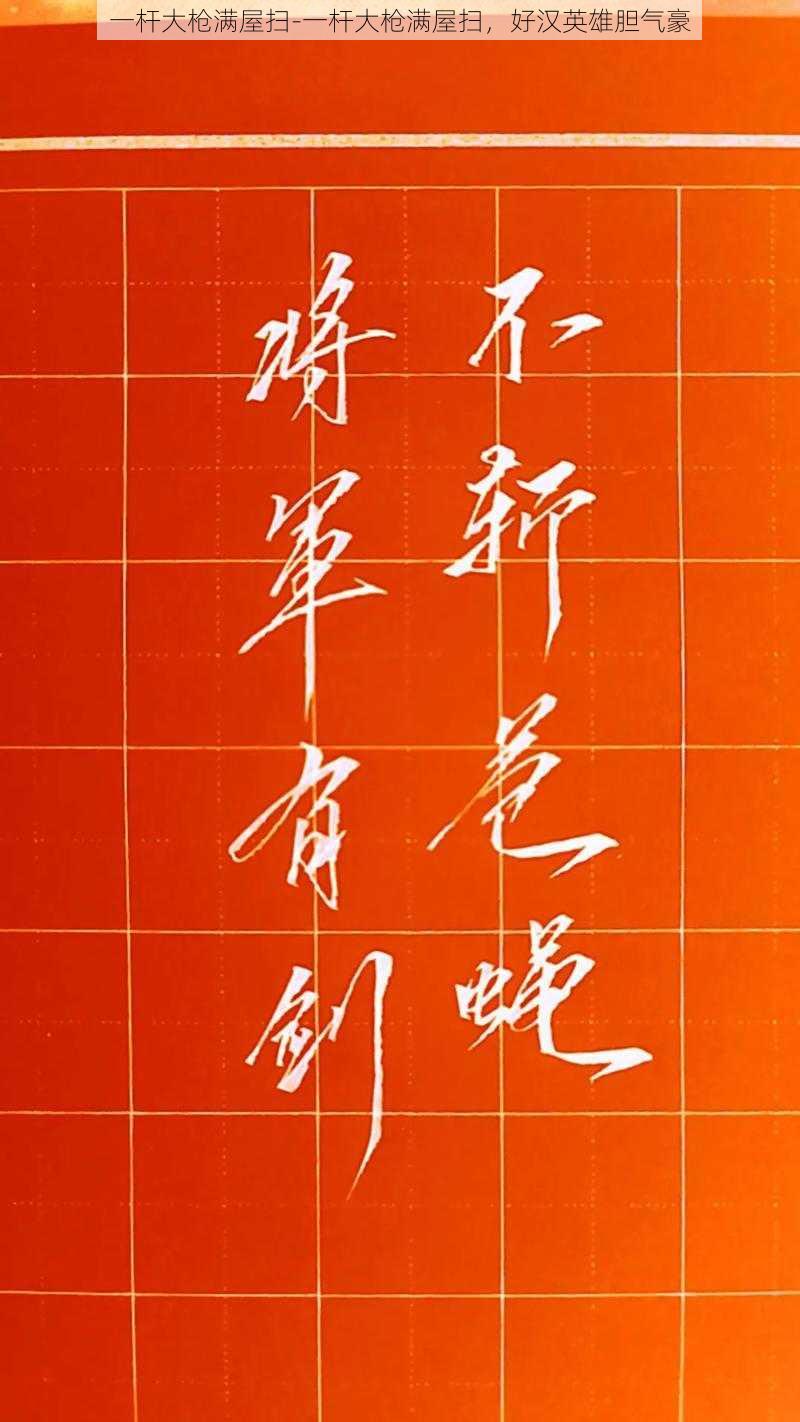 一杆大枪满屋扫-一杆大枪满屋扫，好汉英雄胆气豪
將軍有剑
不斩苍蝇